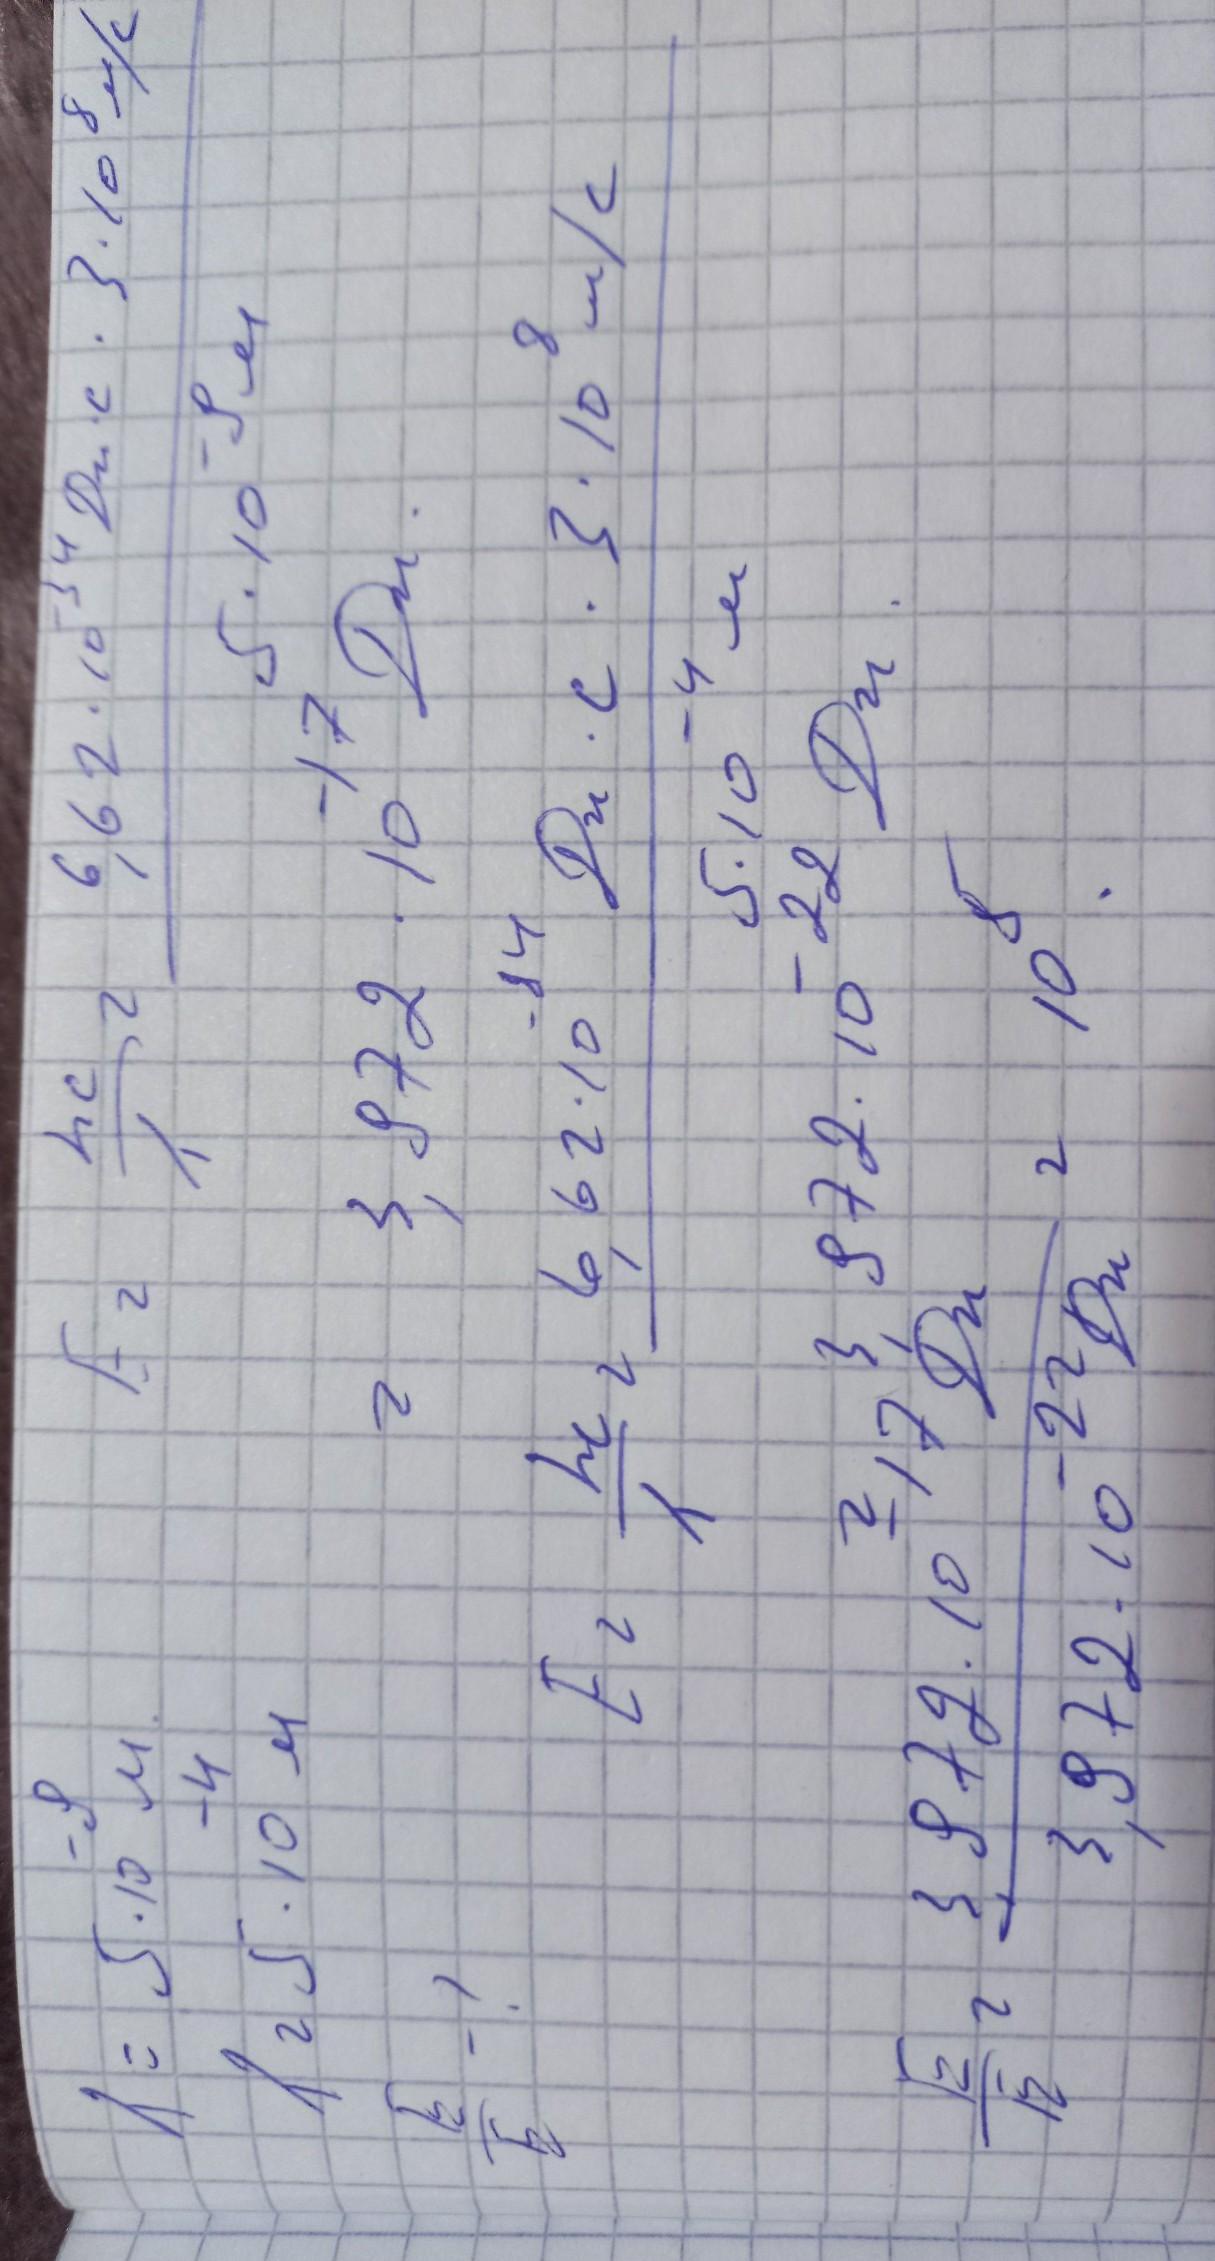 λ = 5·10⁻⁹ м. E = hc/λ = 6,62·10⁻³⁴ Дж·с · 3·10⁸ м/с
5·10⁻⁹ м
λ = 5·10⁻⁴ м
= 3,972 · 10⁻¹⁷ Дж.
E/E - ?
E = hc/λ = 6,62·10⁻³⁴ Дж·с · 3·10⁸ м/с
5·10⁻⁴ м
= 3,972·10⁻²² Дж.
E/E = 3,972·10⁻¹⁷ Дж
3,972·10⁻²² Дж = 10⁵.